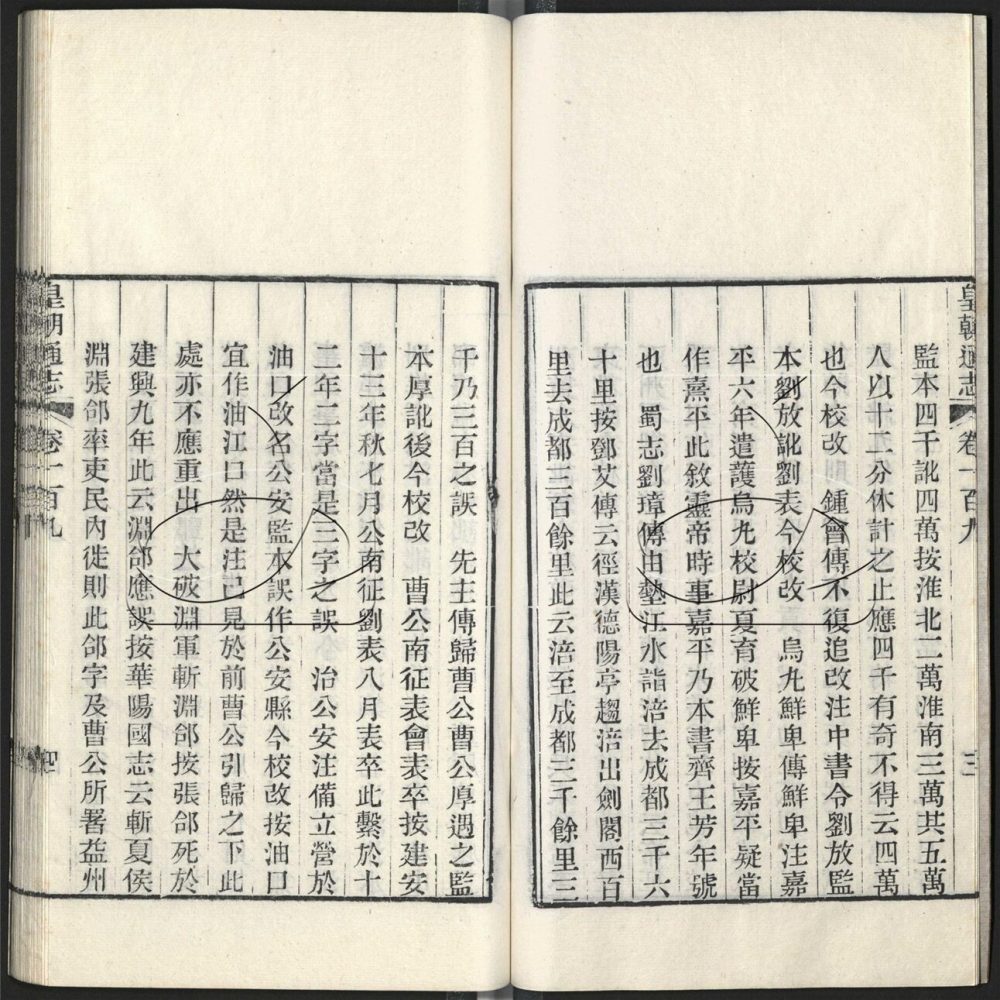 皇朝通志 卷一百九 三
監本四千訛四萬按淮北二萬淮南三萬共五萬
人以十二分休計之止應四千有奇不得云四萬
也今校改 鍾會傳不復追改注中書令劉放監
本劉放訛劉表今校改 烏丸鮮卑傳鮮卑注嘉
平六年遣護烏丸校尉夏育破鮮卑按嘉平疑當
作熹平此敘靈帝時事嘉平乃本書齊王芳年號
也 蜀志劉璋傳由墊江水詣涪去成都三千六
十里按鄧艾傳云徑漢德陽亭趨涪出劍閣西百
里去成都三百餘里此云涪至成都三千餘里三
千乃三百之誤 先主傳歸曹公曹公厚遇之監
本厚訛後今校改 曹公南征表會表卒按建安
十三年秋七月公南征劉表八月表卒此繫於十
二年二字當是三字之誤 治公安注備立營於
油口改名公安監本誤作公安縣今校改按油口
宜作油江口然是注已見於前曹公引歸之下此
處亦不應重出 大破淵軍斬淵郃按張郃死於
建興九年此云淵郃應誤按華陽國志云斬夏侯
淵張郃率吏民內徙則此郃字及曹公所署益州
皇朝通志 卷一百九 四